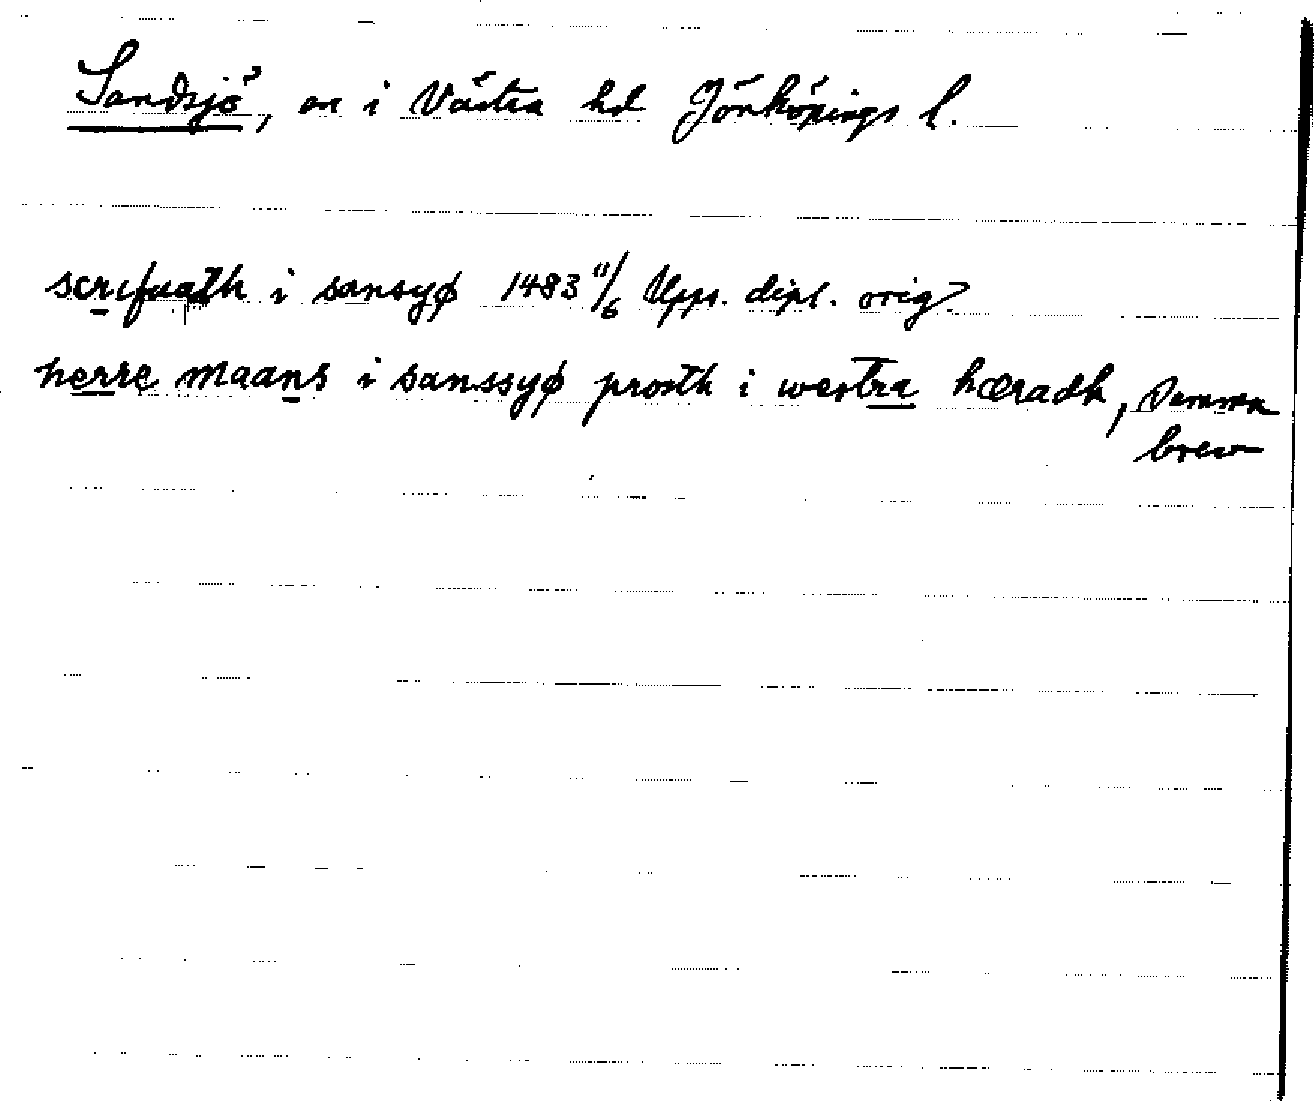 Sandsjö, sn i Västra hd Jönköpings l.
scrifuadh i sansyø 1483 11/6 Upps. dipl. orig
herre maans i sanssyø prosth i westra hæradh, samma
brev